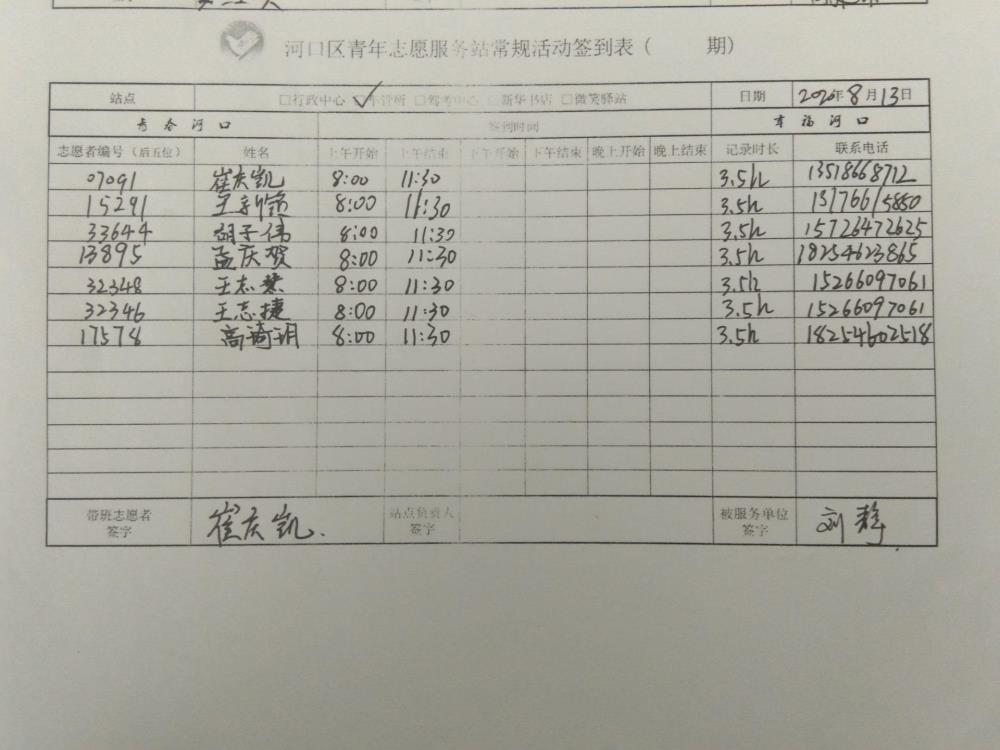 河口区青年志愿服务站常规活动签到表（ 期）
站点 □行政中心 ☑车管所 □驾考中心 □新华书店 □微笑驿站 日期 2020年8月13日
青春河口 签到时间 幸福河口
志愿者编号（后五位） 姓名 上午开始 上午结束 下午开始 下午结束 晚上开始 晚上结束 记录时长 联系电话
07091 崔庆凯 8:00 11:30 3.5h 13518668712
15291 8:00 11:30 3.5h 13776615850
33644 胡子伟 8:00 11:30 3.5h 15726472625
13895 孟庆贺 8:00 11:30 3.5h 18254623865
32348 王志荣 8:00 11:30 3.5h 15266097061
32346 王志捷 8:00 11:30 3.5h 15266097061
17578 高琦玥 8:00 11:30 3.5h 18254602518
带班志愿者签字 崔庆凯. 站点负责人签字 被服务单位签字 刘静